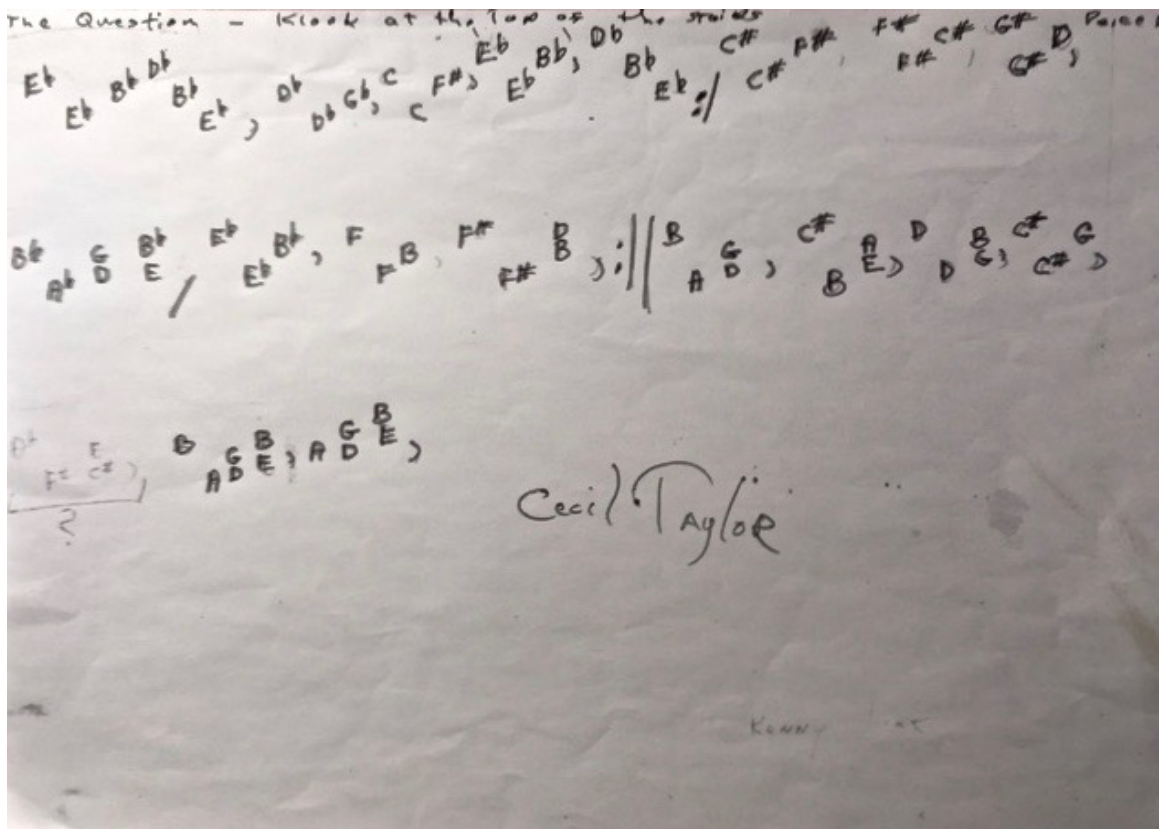 The Question – Klook at the Top of the stairs
Eb Eb Bb Db Bb Eb, Db Db Gb, C C F#, Eb Eb Bb, Db Bb Eb :/ C# C# F#, F# F# C#, G# G# D,
Bb Ab G D Bb E / Eb Eb Bb, F F B, F# F# D B, :|| B A G D, C# B A E, D D B G, C# C# G,
F# E C#), B A G D B E, A G D B E,
?
Cecil Taylor